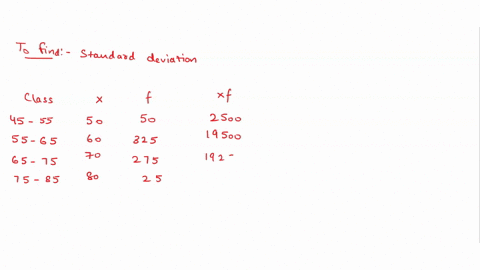 To find:- Standard deviation
Class x f xf
45-55 50 50 2500
55-65 60 325 19500
65-75 70 275 192-
75-85 80 25